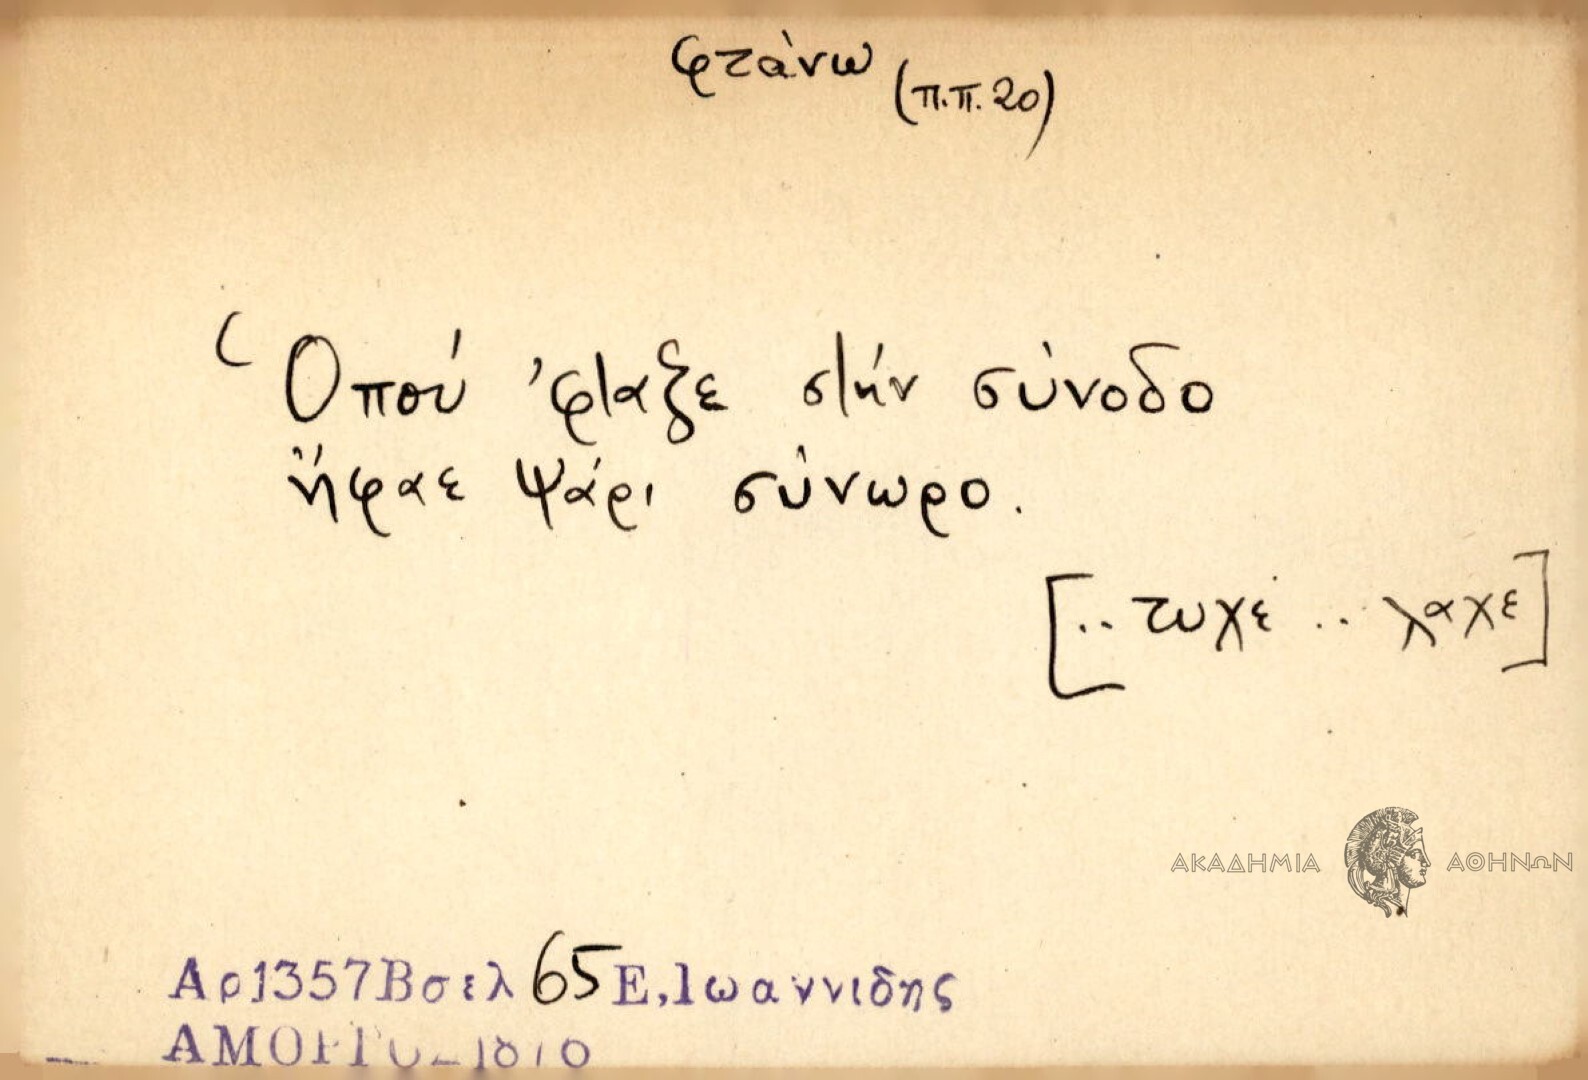 φτάνω (π.π. 20)
Ὁπού 'φταξε στήν σύνοδο
ἤφαε ψάρι σύνωρο.
[.. τυχε .. λαχε]
ΑΚΑΔΗΜΙΑ ΑΘΗΝΩΝ
Αρ1357Βσελ 65 Ε,Ιωαννιδης